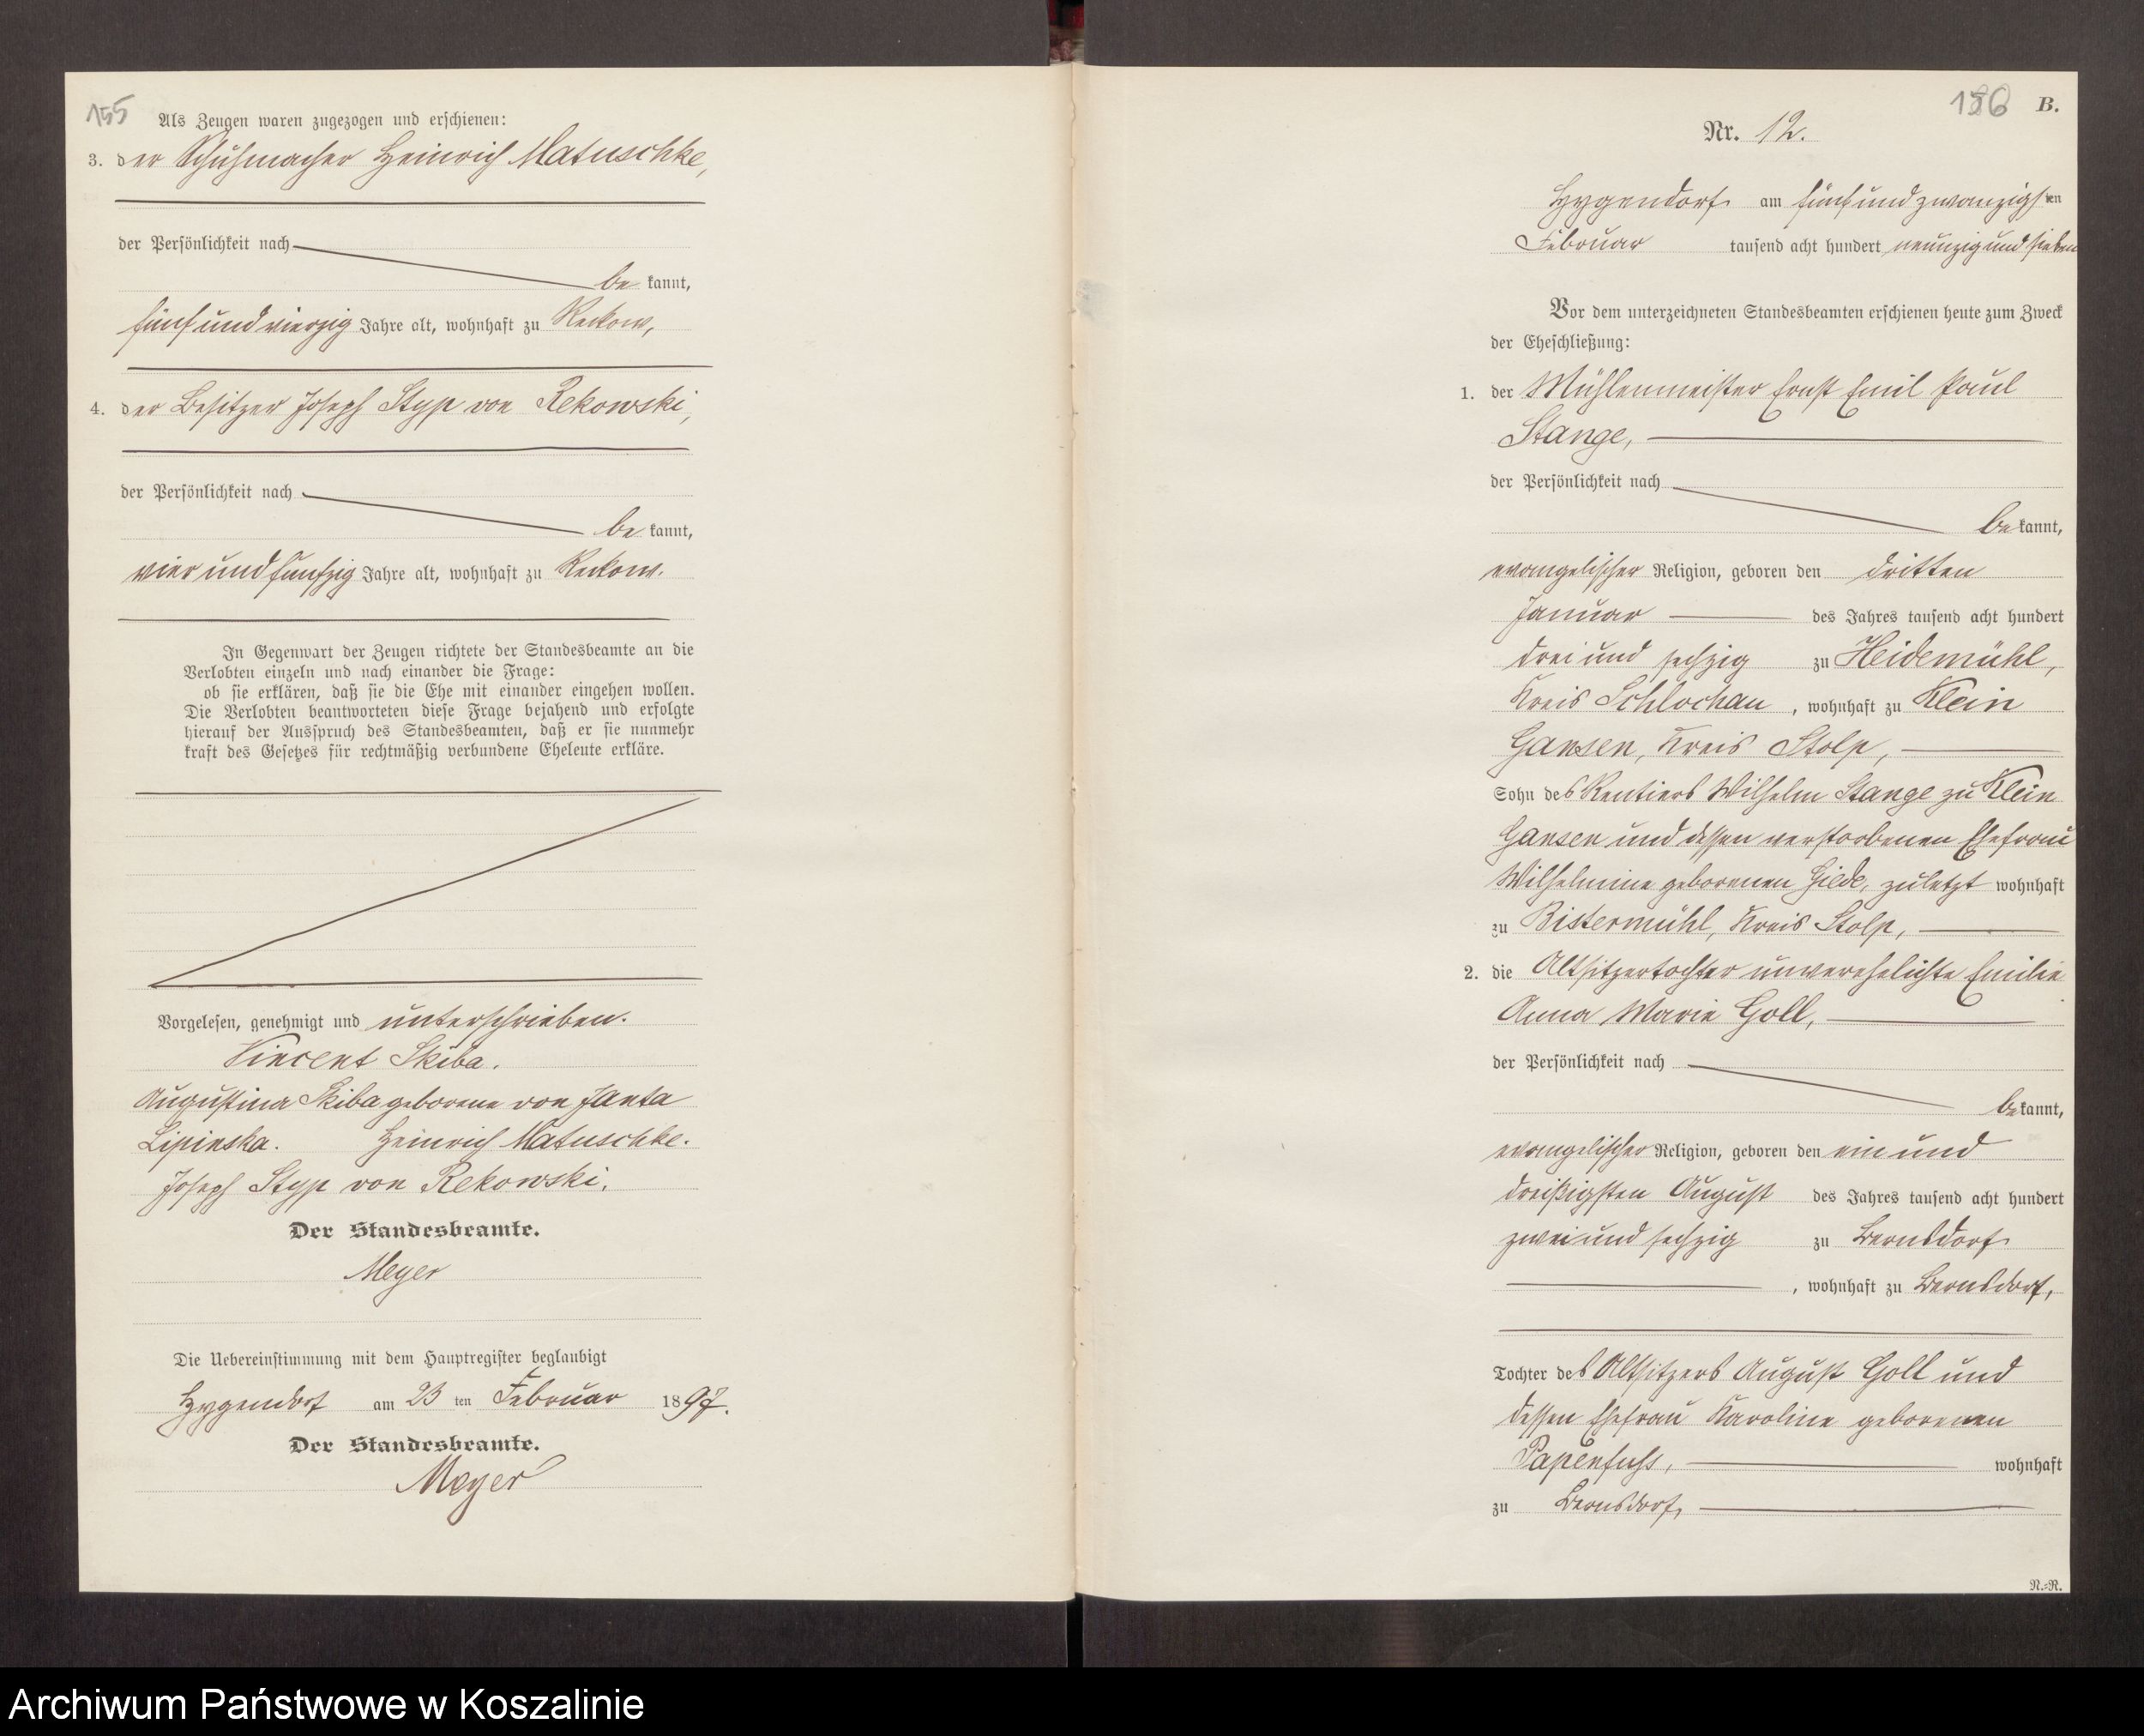 155
Als Zeugen waren zugezogen und erschienen:
3. der Schuhmacher Heinrich Matuschke,
der Persönlichkeit nach
be kannt,
fünf und vierzig Jahre alt, wohnhaft zu Reckow,
4. der Besitzer Joseph Styp von Rekowski,
der Persönlichkeit nach
be kannt,
vier und fünfzig Jahre alt, wohnhaft zu Reckow.
In Gegenwart der Zeugen richtete der Standesbeamte an die
Verlobten einzeln und nach einander die Frage:
ob sie erklären, daß sie die Ehe mit einander eingehen wollen.
Die Verlobten beantworteten diese Frage bejahend und erfolgte
hierauf der Ausspruch des Standesbeamten, daß er sie nunmehr
kraft des Gesetzes für rechtmäßig verbundene Eheleute erkläre.
Vorgelesen, genehmigt und unterschrieben.
Vincent Skiba.
Augustina Skiba geborene von Janta
Lipinska. Heinrich Matuschke.
Joseph Styp von Rekowski.
Der Standesbeamte.
Meyer
Die Uebereinstimmung mit dem Hauptregister beglaubigt
Hygendorf am 23 ten Februar 1897.
Der Standesbeamte.
Meyer
B.
Nr. 12.
Hygendorf am fünf und zwanzigsten
Februar tausend acht hundert neunzig und sieben
Vor dem unterzeichneten Standesbeamten erschienen heute zum Zweck
der Eheschließung:
1. der Mühlenmeister Ernst Emil Paul
Stange,
der Persönlichkeit nach
be kannt,
evangelischer Religion, geboren den dritten
Januar des Jahres tausend acht hundert
drei und sechzig zu Heidemühl,
Kreis Schlochau, wohnhaft zu Klein
Gansen, Kreis Stolp,
Sohn des Rentiers Wilhelm Stange zu Klein
Gansen und dessen verstorbenen Ehefrau
Wilhelmine geborenen Giede, zuletzt wohnhaft
zu Bistermühl, Kreis Stolp,
2. die Altsitzertochter unverehelichte Emilie
Anna Marie Goll,
der Persönlichkeit nach
be kannt,
evangelischer Religion, geboren den ein und
dreißigsten August des Jahres tausend acht hundert
zwei und sechzig zu Bernsdorf
, wohnhaft zu Bernsdorf,
Tochter des Altsitzers August Goll und
dessen Ehefrau Karoline geborenen
Papenfuss, wohnhaft
zu Bernsdorf,
N.=R.
Archiwum Państwowe w Koszalinie